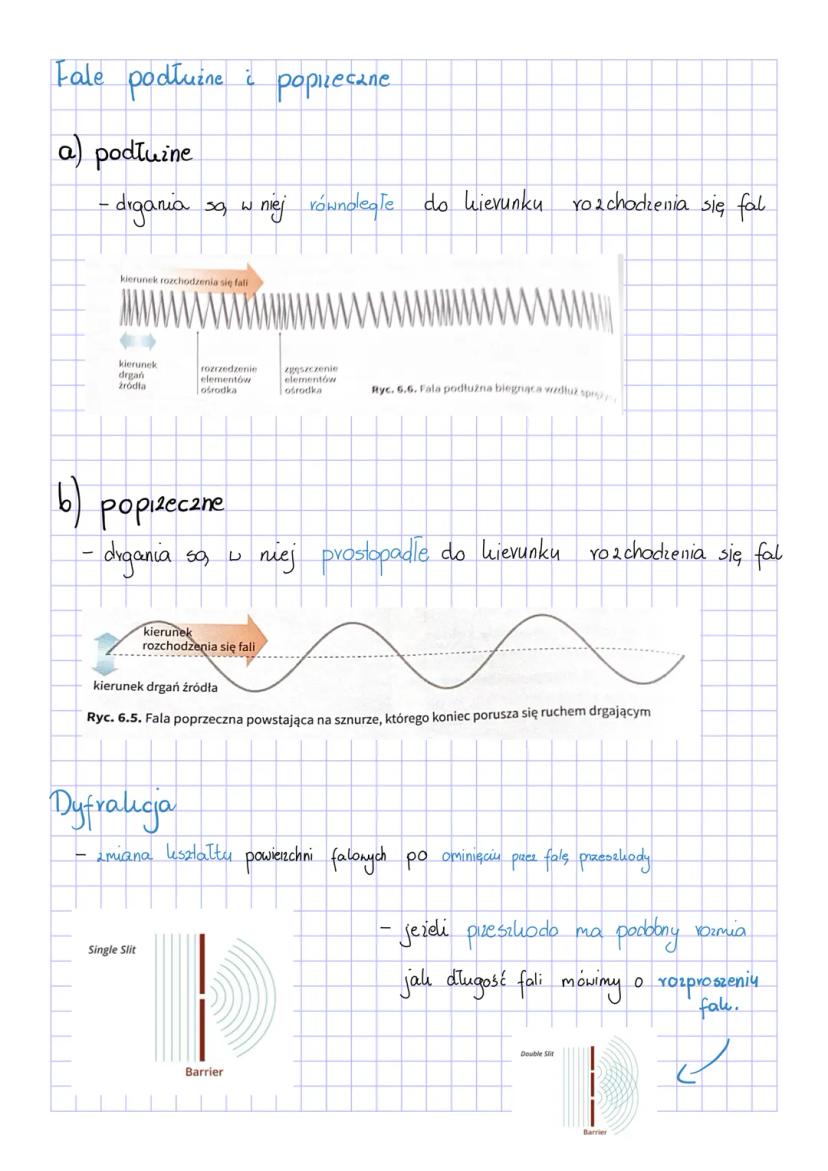 Fale podłużne i poprzeczne
a) podłużne
- drgania są w niej równoległe do kierunku rozchodzenia się fal
kierunek rozchodzenia się fali
kierunek
drgań
źródła
rozrzedzenie
elementów
ośrodka
zgęszczenie
elementów
ośrodka
Ryc. 6.6. Fala podłużna biegnąca wzdłuż
b) poprzeczne
- drgania są w niej prostopadłe do kierunku rozchodzenia się fal
kierunek
rozchodzenia się fali
kierunek drgań źródła
Ryc. 6.5. Fala poprzeczna powstająca na sznurze, którego koniec porusza się ruchem drgającym
Dyfrakcja
- zmiana kształtu powierzchni falowych po ominięciu przez falę przeszkody
Single Slit
Barrier
- jeżeli przeszkoda ma podobny rozmia
jak długość fali mówimy o rozproszeniu
fali.
Double Slit
Barrier